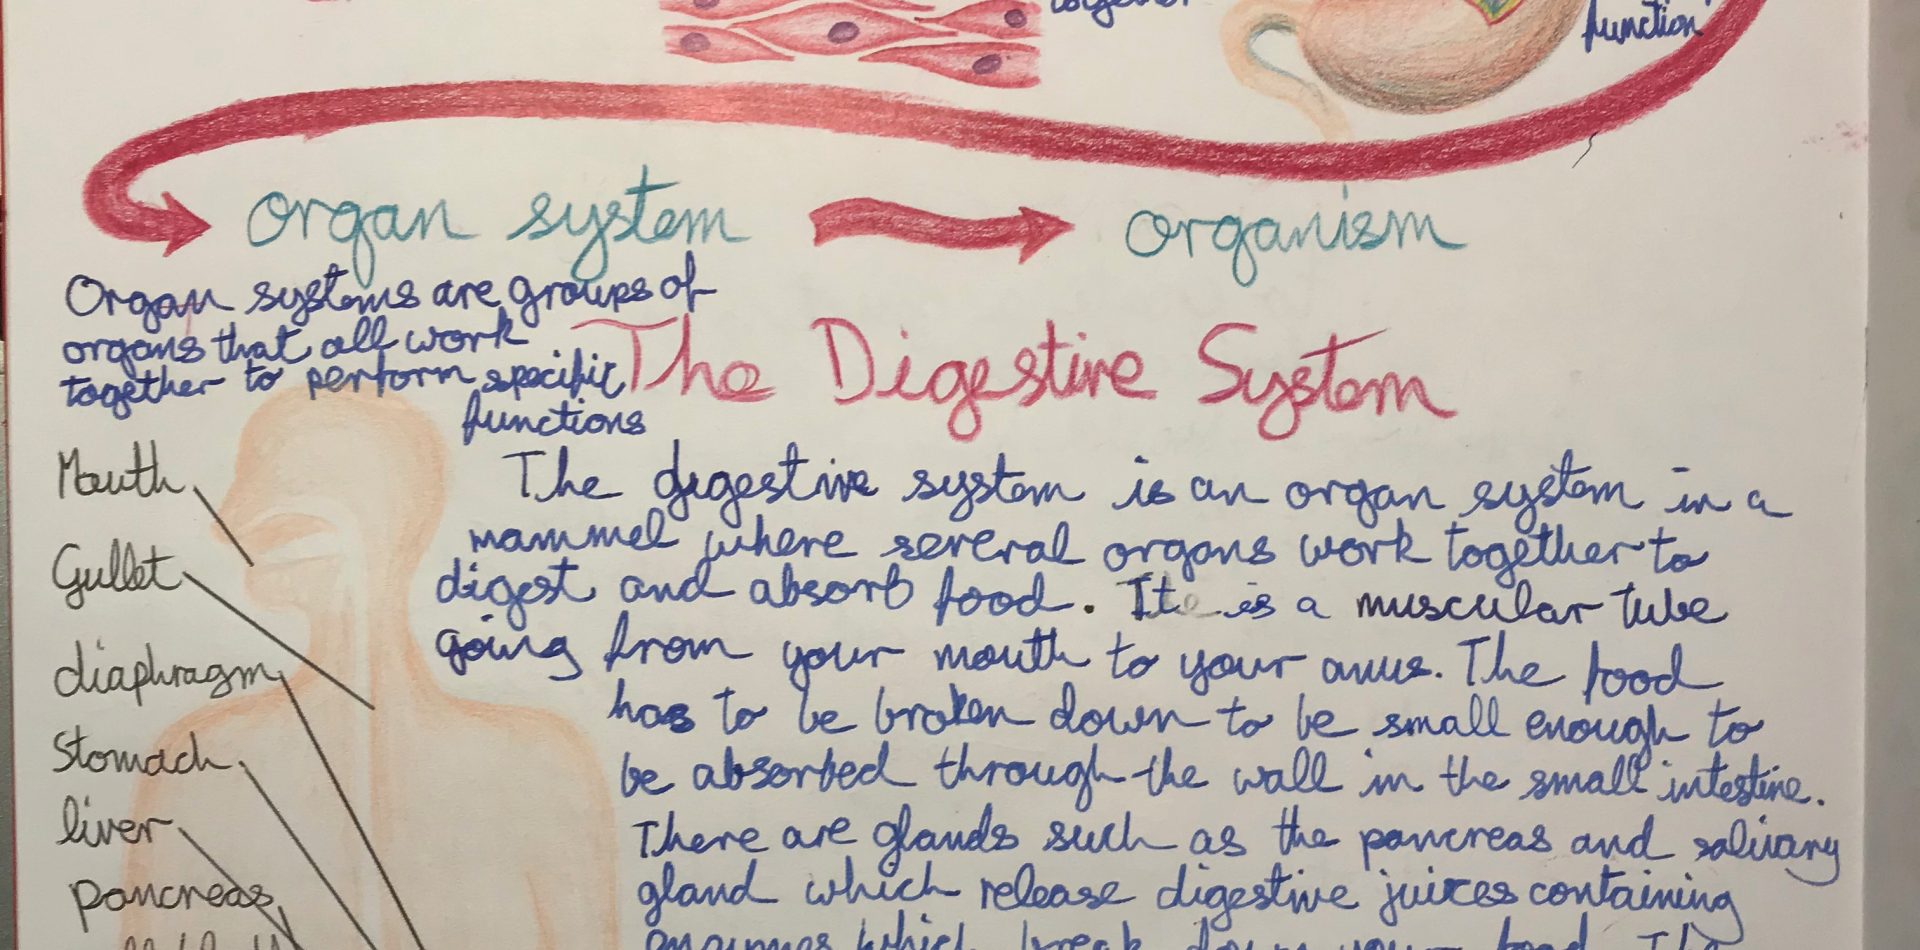 together
function
organ system
organism
Organ systems are groups of
organs that all work
together to perform specific
functions
The Digestive System
Mouth
Gullet
diaphragm
Stomach
liver
pancreas
The digestive system is an organ system in a
mammel where several organs work together to
digest and absorb food. It is a muscular tube
going from your mouth to your anus. The food
has to be broken down to be small enough to
be absorbed through the wall in the small intestine.
There are glands such as the pancreas and salivary
gland which release digestive juices containing
enzymes which break down your food. The